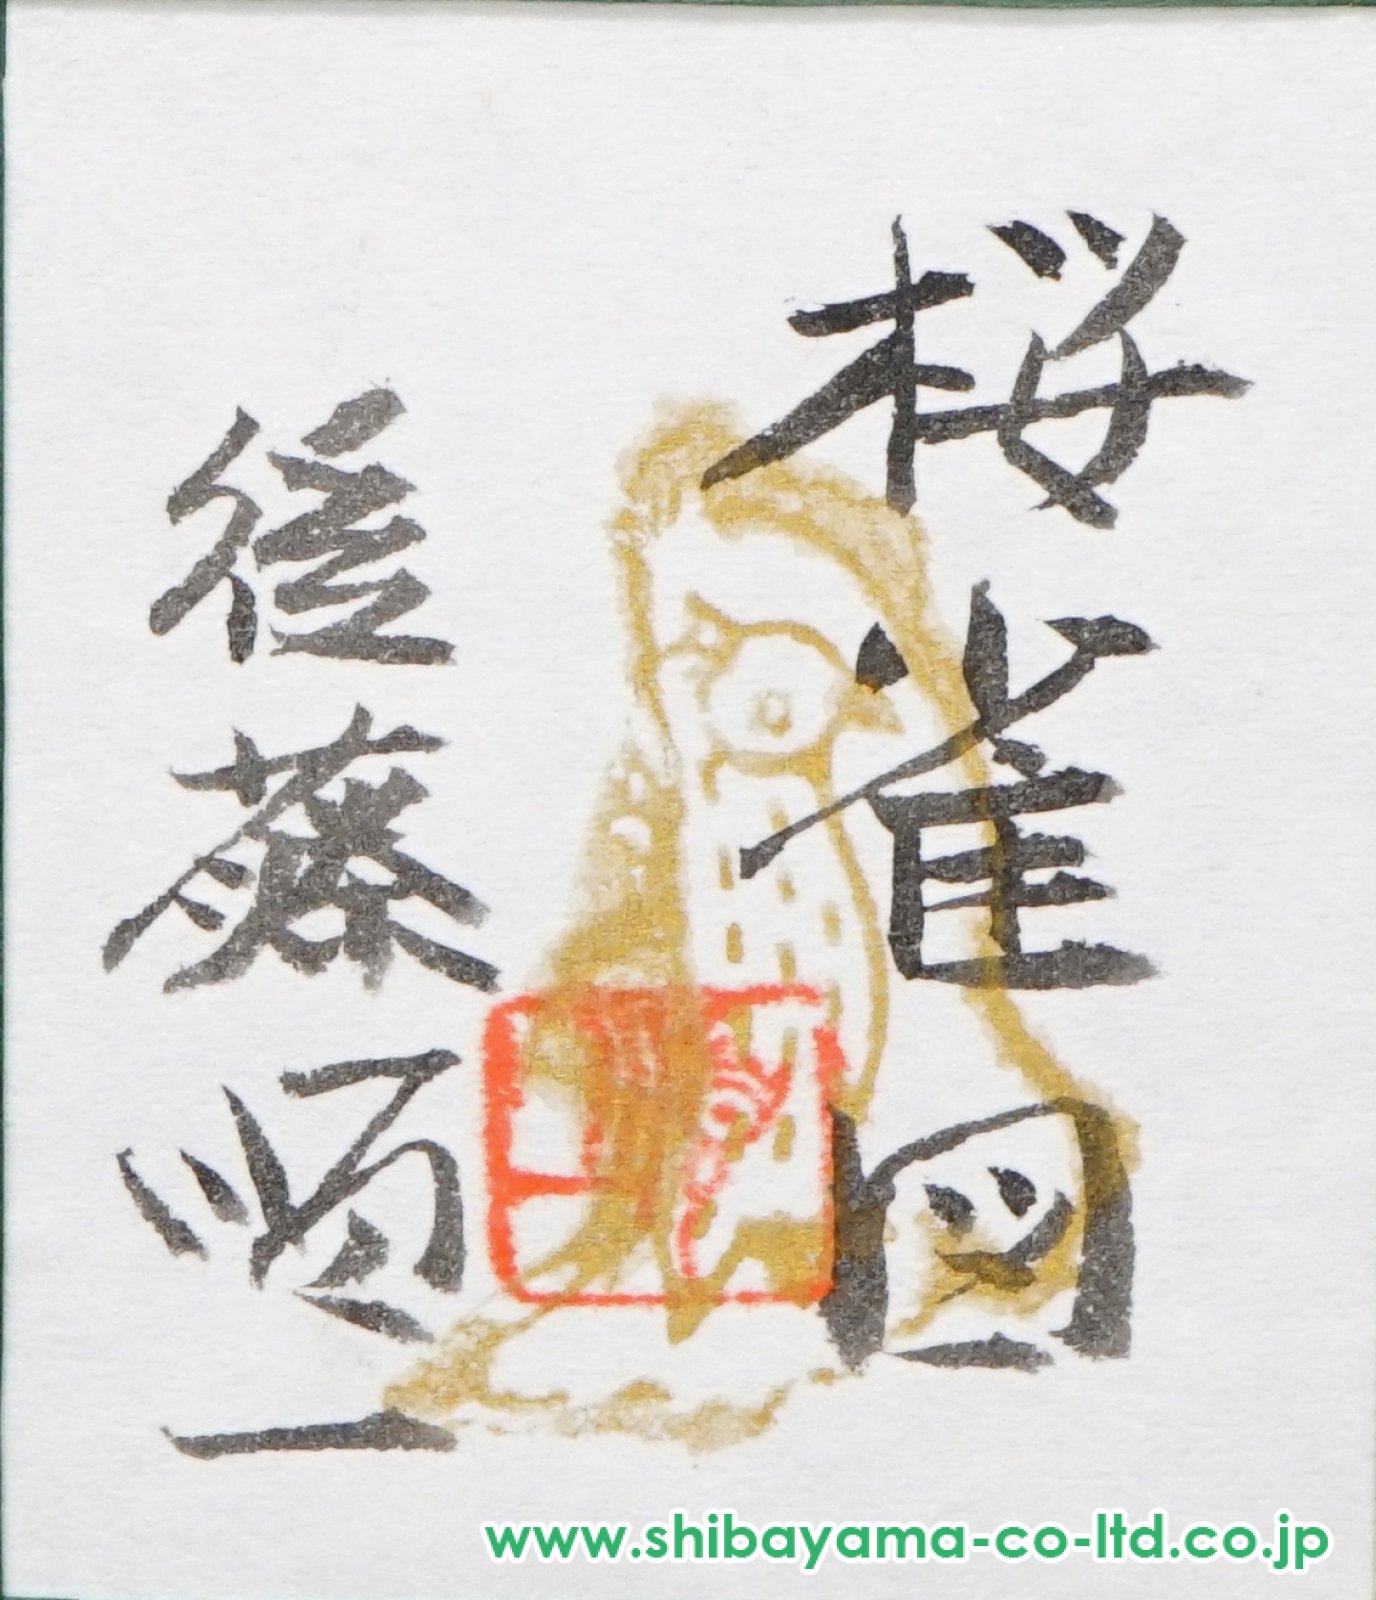 桜雀図
後藤順一
www.shibayama-co-ltd.co.jp